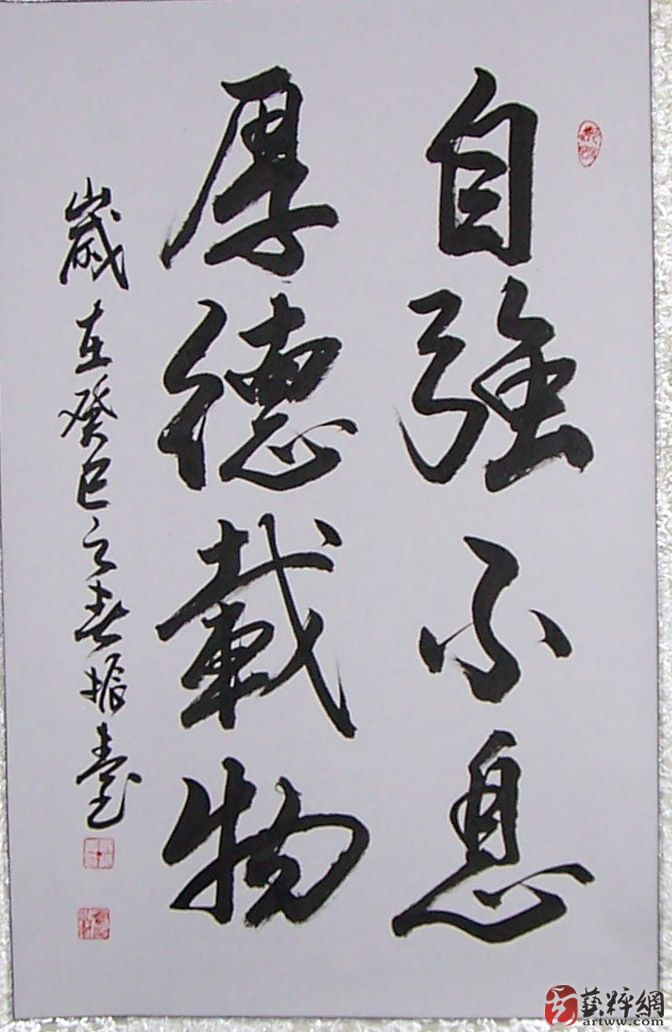 自強不息
厚德載物
歲在癸巳之春振臺
藝粹網
artww.com